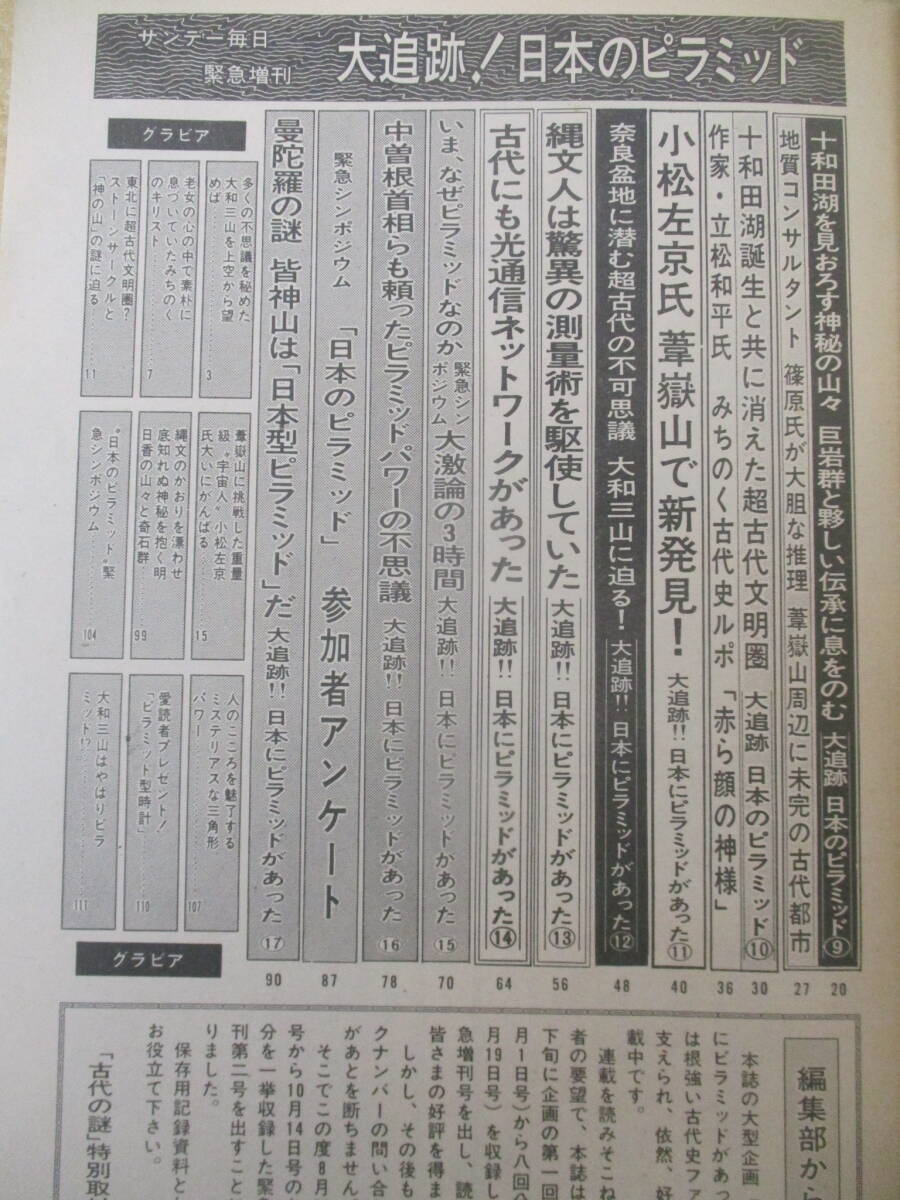 サンデー毎日
緊急増刊
大追跡!日本のピラミッド
十和田湖を見おろす神秘の山々 巨岩群と夥しい伝承に息をのむ 大追跡 日本のピラミッド⑨
20
地質コンサルタント 篠原氏が大胆な推理 葦嶽山周辺に未完の古代都市
27
十和田湖誕生と共に消えた超古代文明圏 大追跡 日本のピラミッド⑩
30
作家・立松和平氏 みちのく古代史ルポ 「赤ら顔の神様」
36
小松左京氏 葦嶽山で新発見! 大追跡!!日本にピラミッドがあった⑪
40
奈良盆地に潜む超古代の不可思議 大和三山に迫る! 大追跡!!日本にピラミッドがあった⑫
48
縄文人は驚異の測量術を駆使していた 大追跡!!日本にピラミッドがあった⑬
56
古代にも光通信ネットワークがあった 大追跡!!日本にピラミッドがあった⑭
64
いま、なぜピラミッドなのか 緊急シンポジウム 大激論の3時間 大追跡!!日本にピラミッドがあった⑮
70
中曽根首相らも頼ったピラミッドパワーの不思議 大追跡!!日本にピラミッドがあった⑯
78
緊急シンポジウム 「日本のピラミッド」 参加者アンケート
87
曼陀羅の謎 皆神山は「日本型ピラミッド」だ 大追跡!!日本にピラミッドがあった⑰
90
グラビア
多くの不思議を秘めた
大和三山を上空から望
めば………3
老女の心の中で素朴に
息づいていたみちのく
のキリスト………7
東北に超古代文明圏?
ストーンサークルと
「神の山」の謎に迫る………11
葦嶽山に挑戦した重量
級〝宇宙人〟小松左京
氏大いにがんばる………15
縄文のかおりを漂わせ
底知れぬ神秘を抱く明
日香の山々と奇石群………99
〝日本のピラミッド〟緊
急シンポジウム………104
人のこころを魅了する
ミステリアスな三角形
パワー………107
愛読者プレゼント!
「ピラミット型時計」………110
大和三山はやはりピラ
ミット!?………111
グラビア
編集部から
本誌の大型企画
にピラミッドがあっ
は根強い古代史ファ
支えられ、依然、好
載中です。
連載を読みそこね
者の要望で、本誌は
下旬に企画の第一回
月1日号)から八回分
月19日号)を収録し
急増刊号を出し、読
皆さまの好評を得ま
しかし、その後も
クナンバーの問い合
があとを断ちません
そこでこの度8月
号から10月14日号の
分を一挙収録した緊
刊第二号を出すこと
りました。
保存用記録資料と
お役立て下さい。
「古代の謎」特別取材